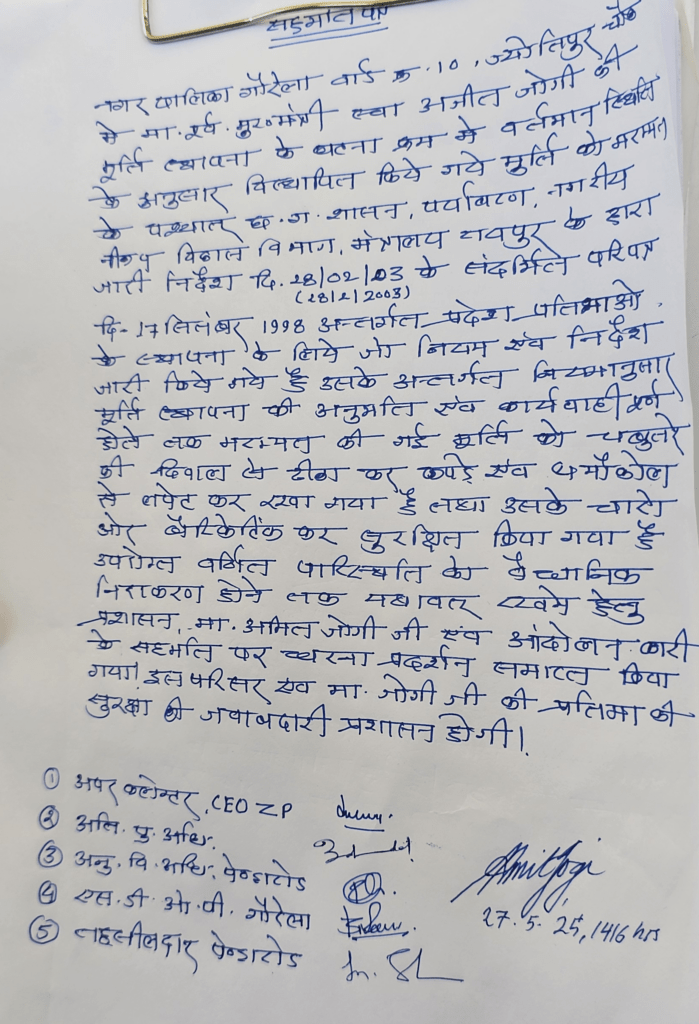 सहमति पत्र
नगर पालिका गौरेला वार्ड क्र. 10, ज्योतिपुर चौक
मे मा. पूर्व. मुख्यमंत्री स्व० अजीत जोगी की
मूर्ति स्थापना के घटना क्रम मे वर्तमान स्थिति
के अनुसार विस्थापित किये गये मुर्ति को मरम्मत
के पश्चात छ. ग. शासन, पर्यावरण, नगरीय
विकास विभाग, मंत्रालय रायपुर के द्वारा
जारी निर्देश दि. 28/02/03 के संदर्भित परिपत्र
(28/2/2003)
दि- 17 सितंबर 1998 अन्तर्गत प्रदेश प्रतिमाओ
के स्थापना के लिये जो नियम एंव निर्देश
जारी किये गये है उसके अन्तर्गत नियमानुसार
मूर्ति स्थापना की अनुमति एंव कार्यवाही पूर्ण
होते तक मरम्मत की गई मूर्ति को चबुतरे
की दिवाल से टीका कर कपड़े एंव थर्माकोल
से लपेट कर रखा गया है तथा उसके चारो
ओर बैरिकेटिंक कर सुरक्षित किया गया है
उपरोक्त वर्णित पारिस्थति का वैधानिक
निराकरण होने तक यथावत रखने हेतु
प्रशासन, मा. अमित जोगी जी एंव आंदोलन कारी
के सहमति पर धरना प्रदर्शन समाप्त किया
गया। इस परिसर एंव मा. जोगी जी की प्रतिमा की
सुरक्षा की जवाबदारी प्रशासन होगी।
① अपर कलेक्टर, CEO ZP
② अति. पु. अधि.
③ अनु. वि. अधि. पेण्ड्रारोड
④ एस. डी. ओ. पी. गौरेला
⑤ तहसीलदार पेण्ड्रारोड
Amit Jogi
27.5.25, 1416 hrs